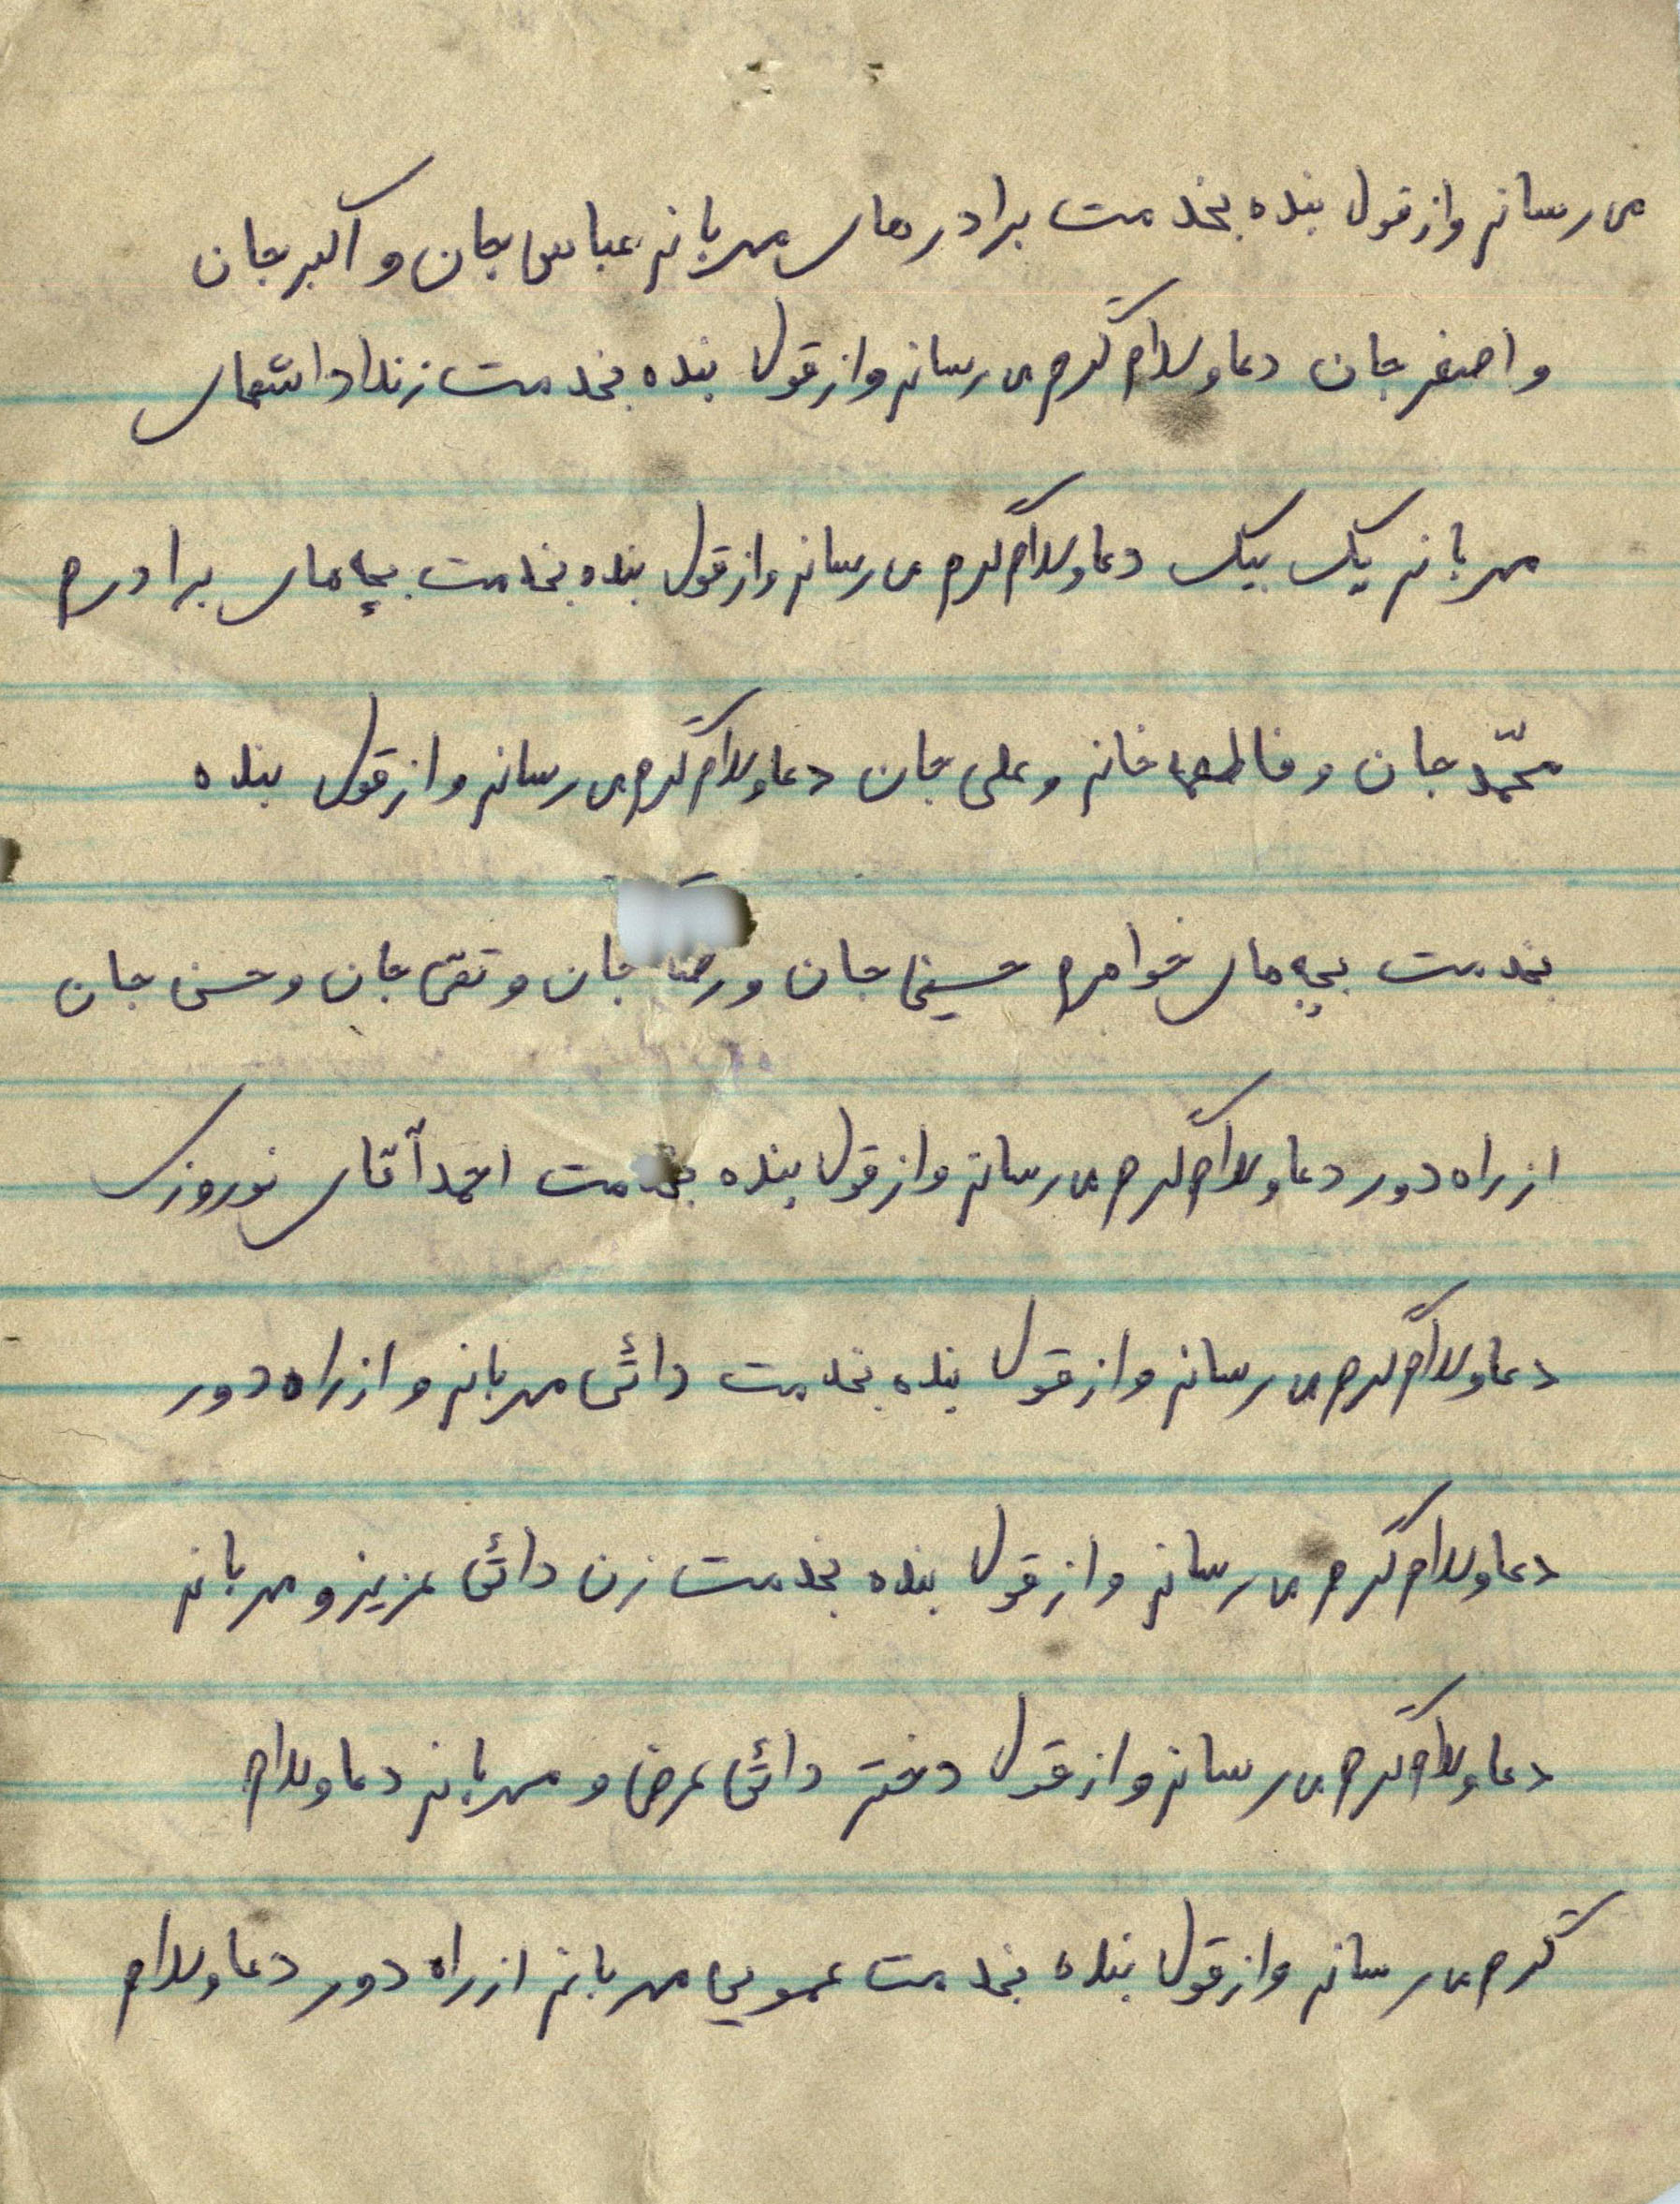 می رسانم و از قول بنده بخدمت برادرهای مهربانم عباس جان و اکبر جان
و اصغر جان دعا و سلام گرم می رسانم و از قول بنده بخدمت زنداداشهای
مهربانم یک بیک دعا و سلام گرم می رسانم و از قول بنده بخدمت بچه های برادرم
محمّد جان و فاطمه خانم و علی جان دعا و سلام گرم می رسانم و از قول بنده
بخدمت بچه های خواهرم حسین جان و رضا جان و تقی جان و حسن جان
از راه دور دعا و سلام گرم می رسانم و از قول بنده بخدمت احمد آقای نوروزی
دعا و سلام گرم می رسانم و از قول بنده بخدمت دائی مهربانم و از راه دور
دعا و سلام گرم می رسانم و از قول بنده بخدمت زن دائی عزیز و مهربانم
دعا و سلام گرم می رسانم و از قول دختر دائی و مهربانم دعا و سلام
گرم می رسانم و از قول بنده بخدمت عمویی مهربانم از راه دور دعا و سلام